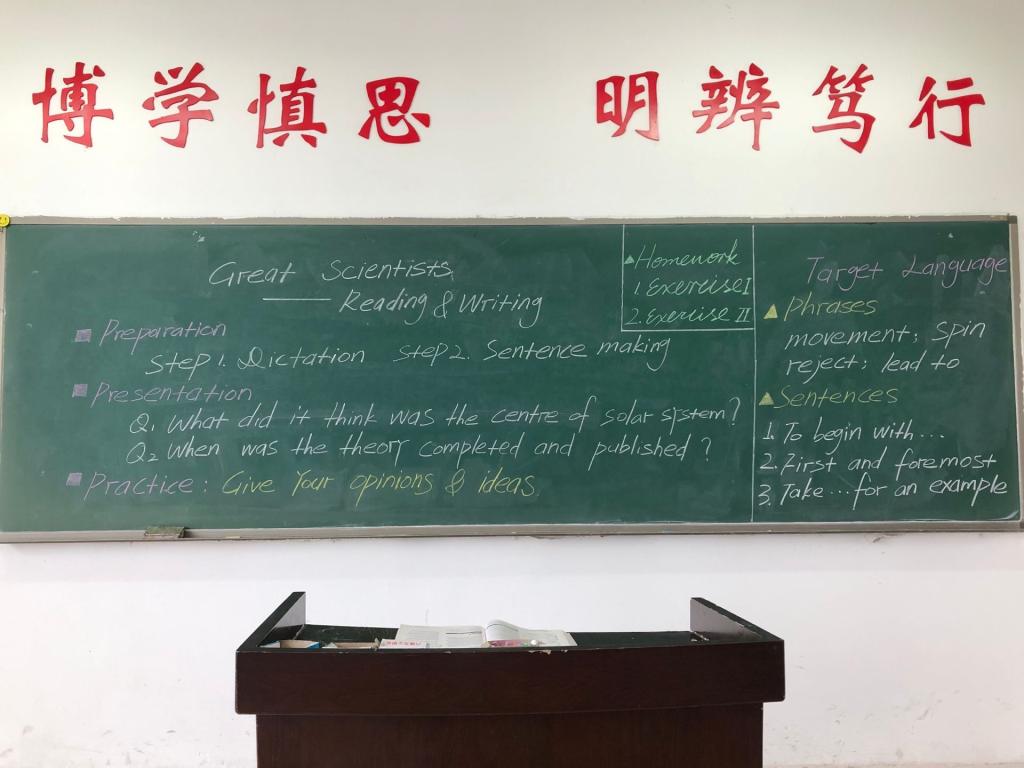 博学慎思 明辨笃行
Great Scientists
—— Reading & Writing
Preparation
Step 1. Dictation Step 2. Sentence making
Presentation
Q1 What did it think was the centre of solar system?
Q2 When was the theory completed and published?
Practice: Give Your opinions & ideas
Homework
1. Exercise I
2. Exercise II
Target Language
Phrases
movement; spin
reject; lead to
Sentences
1. To begin with...
2. First and foremost
3. Take...for an example